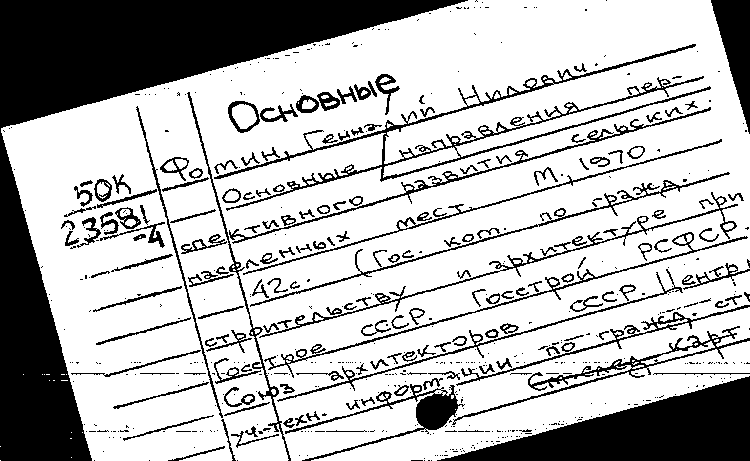 Основные
Фомин, Геннадий Нилович.
50К
Основные направления пер-
23581
-4
спективного развития сельских
населенных мест. М., 1970.
42с. (Гос. ком. по гражд.
строительству и архитектуре при
Госстрое СССР. Госстрой РСФСР.
Союз архитекторов. СССР. Центр
уч.-техн. информации по гражд.
См. след. карт